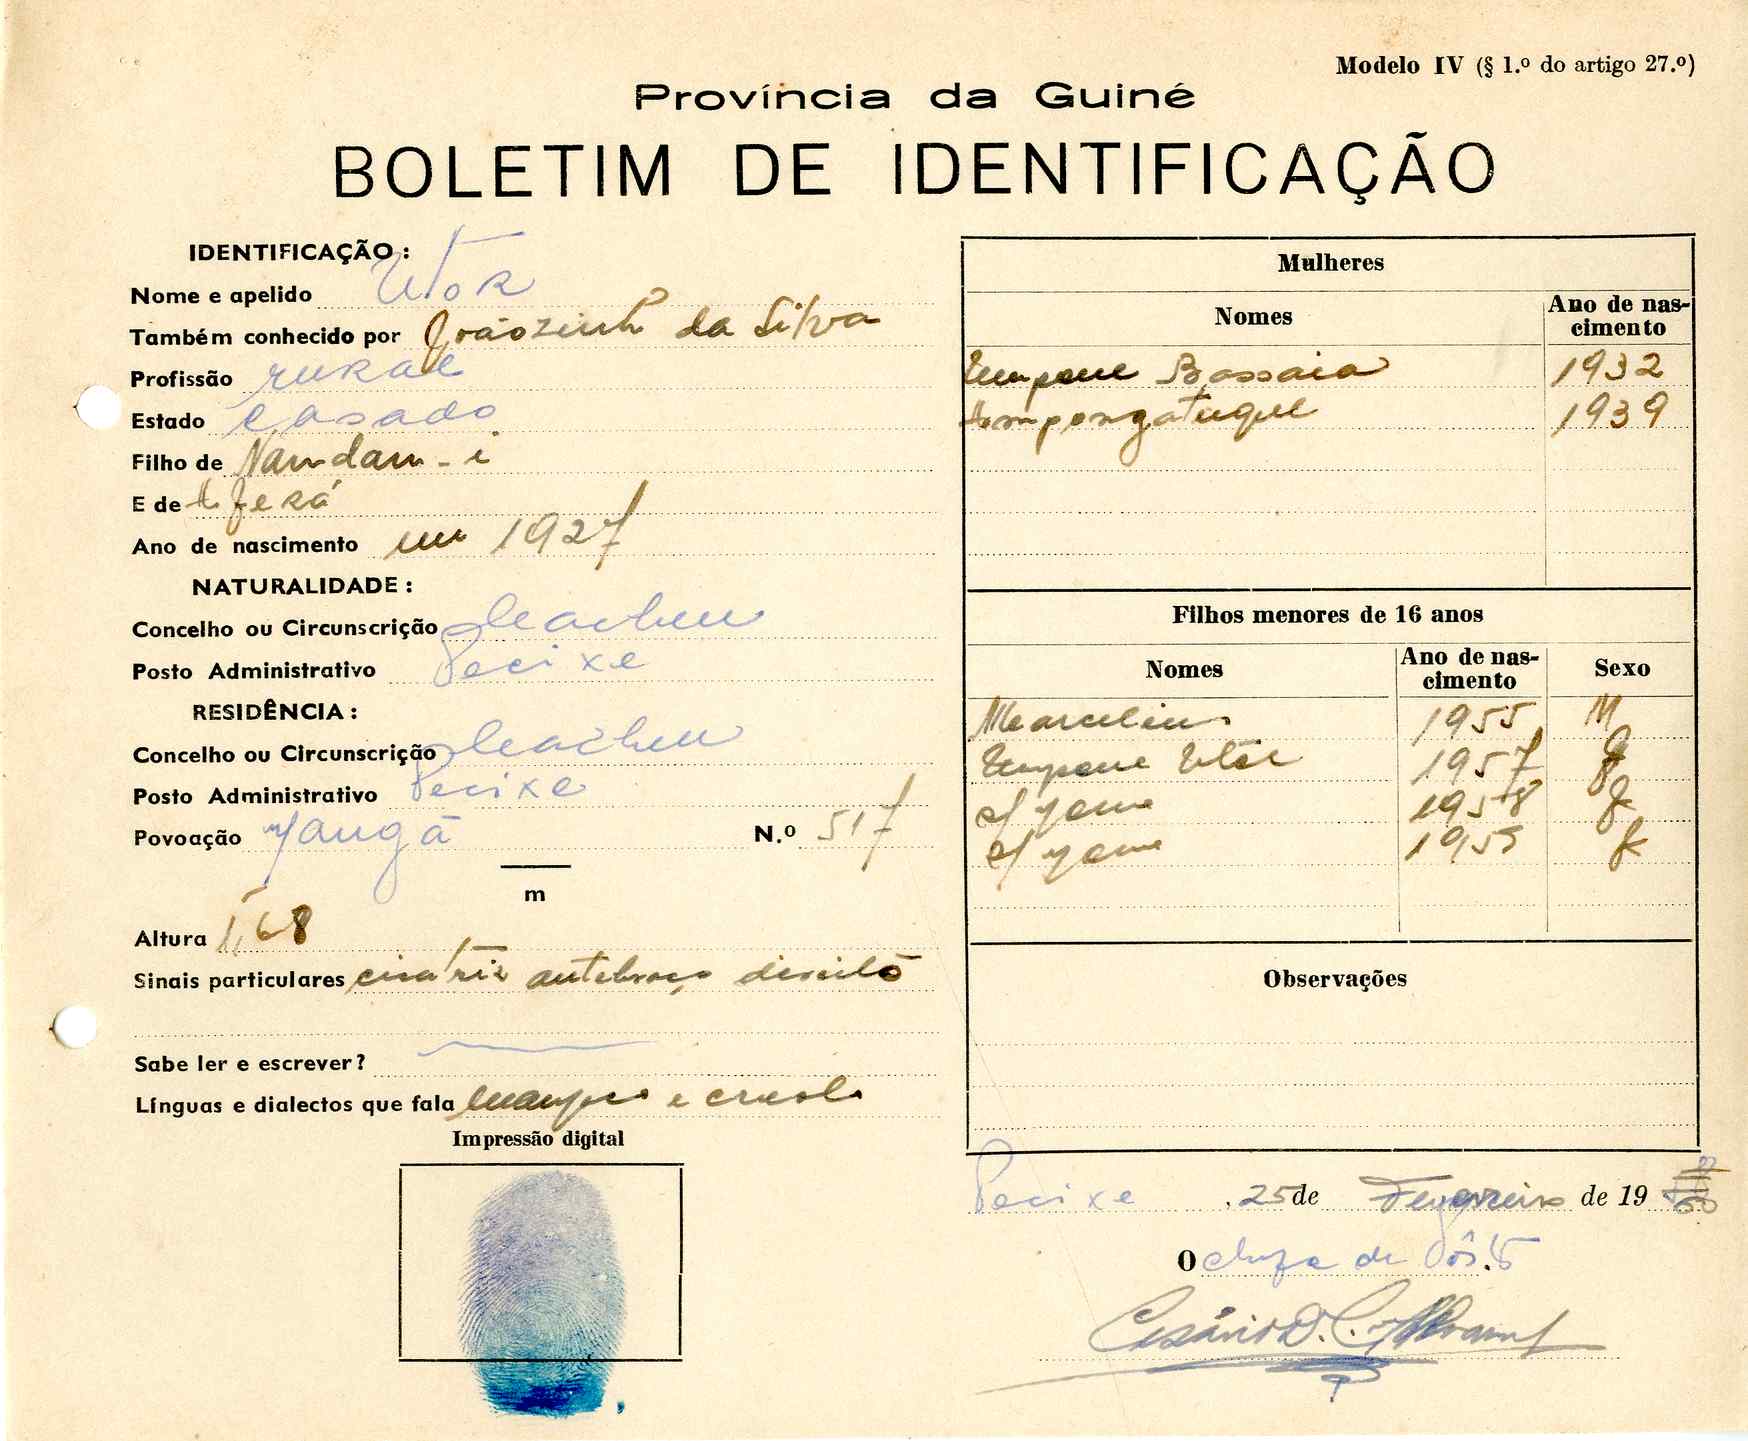 Modelo IV (§ 1.º do artigo 27.º)
Província da Guiné
BOLETIM DE IDENTIFICAÇÃO
IDENTIFICAÇÃO:
Nome e apelido Utor
Também conhecido por Joãozinho da Silva
Profissão rural
Estado casado
Filho de Nandam-i
E de
Ano de nascimento em 1927
NATURALIDADE:
Concelho ou Circunscrição Cacheu
Posto Administrativo Pecixe
RESIDÊNCIA:
Concelho ou Circunscrição Cacheu
Posto Administrativo Pecixe
Povoação N.º 517
m
Altura 1,68
Sinais particulares cicatriz antebraço direito
Sabe ler e escrever?
Línguas e dialectos que fala e creolo
Impressão digital
Mulheres
Nomes Ano de nascimento
Bassaia 1932
1939
Filhos menores de 16 anos
Nomes Ano de nascimento Sexo
Marcelino 1955 M
1957
1958 f
1959 f
Observações
Pecixe, 25 de Fevereiro de 19
O chefe de Pôsto